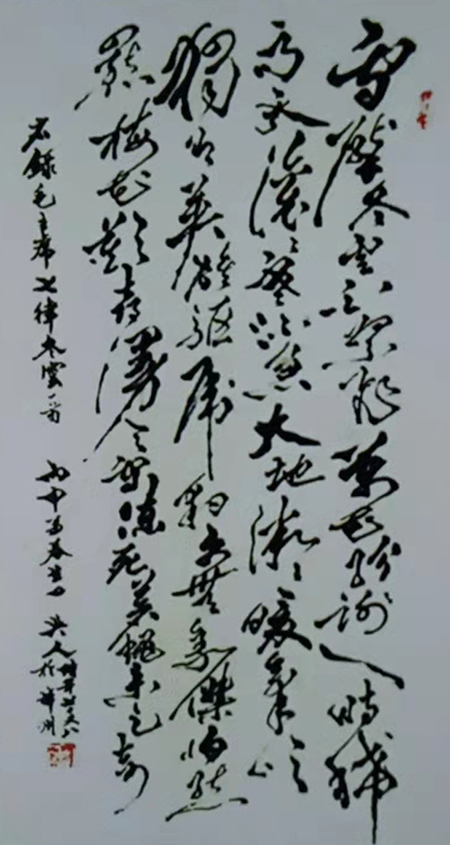 雪壓冬雲白絮飛萬花紛謝一時稀
高天滾滾寒流急大地微微暖氣吹
獨有英雄驅虎豹更無豪傑怕熊
羆梅花歡喜漫天雪凍死蒼蠅未足奇
錄毛主席七律冬雲一首 丙申 春